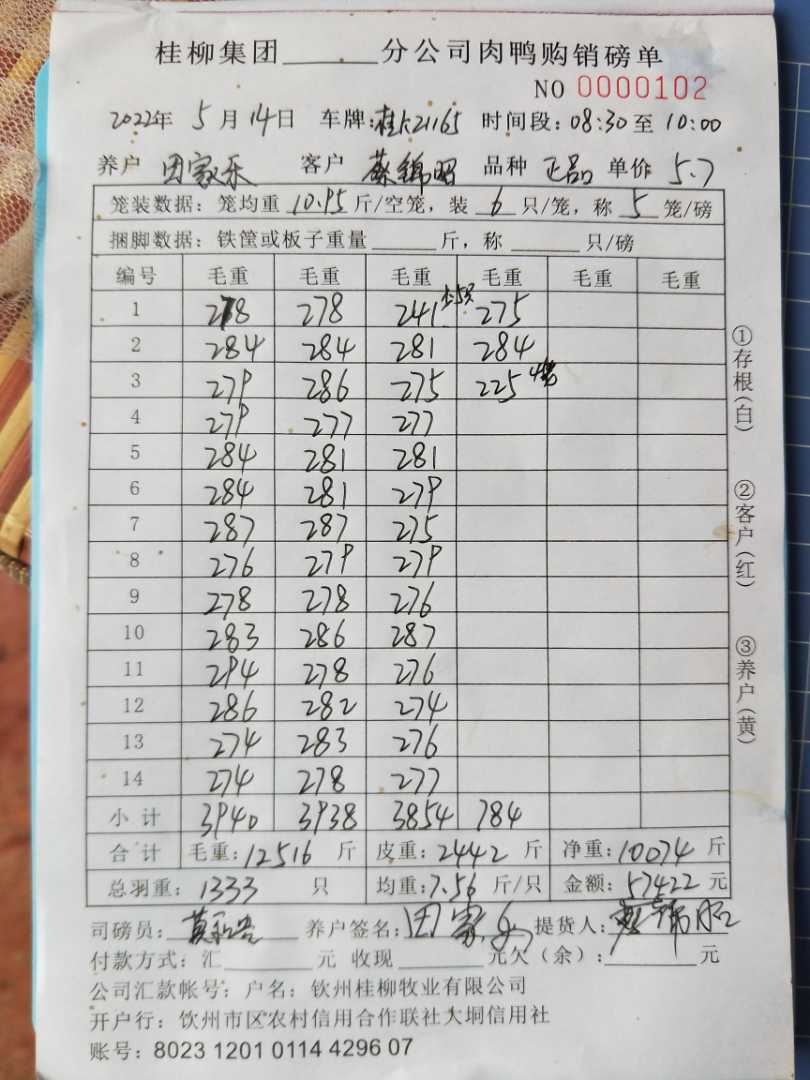 桂柳集团______分公司肉鸭购销磅单
NO 0000102
2022年 5月14日 车牌:桂K21165 时间段:08:30至10:00
养户 田家乐 客户 蔡锦昭 品种 正品 单价 5.7
笼装数据：笼均重 10.95 斤/空笼，装 6 只/笼，称 5 笼/磅
捆脚数据：铁筐或板子重量______斤，称______只/磅
编号 毛重 毛重 毛重 毛重 毛重 毛重
1 278 278 241 275
2 284 284 281 284
3 279 286 275 225
4 279 277 277
5 284 281 281
6 284 281 279
7 287 287 275
8 276 279 279
9 278 278 276
10 283 286 287
11 294 278 276
12 286 282 274
13 274 283 276
14 274 278 277
小计 3940 3938 3854 784
合计 毛重:12516 斤 皮重:2442 斤 净重:10074 斤
总羽重：1333 只 均重:7.56 斤/只 金额:57422 元
司磅员: 养户签名:田家乐 提货人:蔡锦昭
付款方式：汇______元 收现______元欠（余）:______元
公司汇款帐号：户名：钦州桂柳牧业有限公司
开户行：钦州市区农村信用合作联社大垌信用社
账号：8023 1201 0114 4296 07
①存根(白)
②客户(红)
③养户(黄)